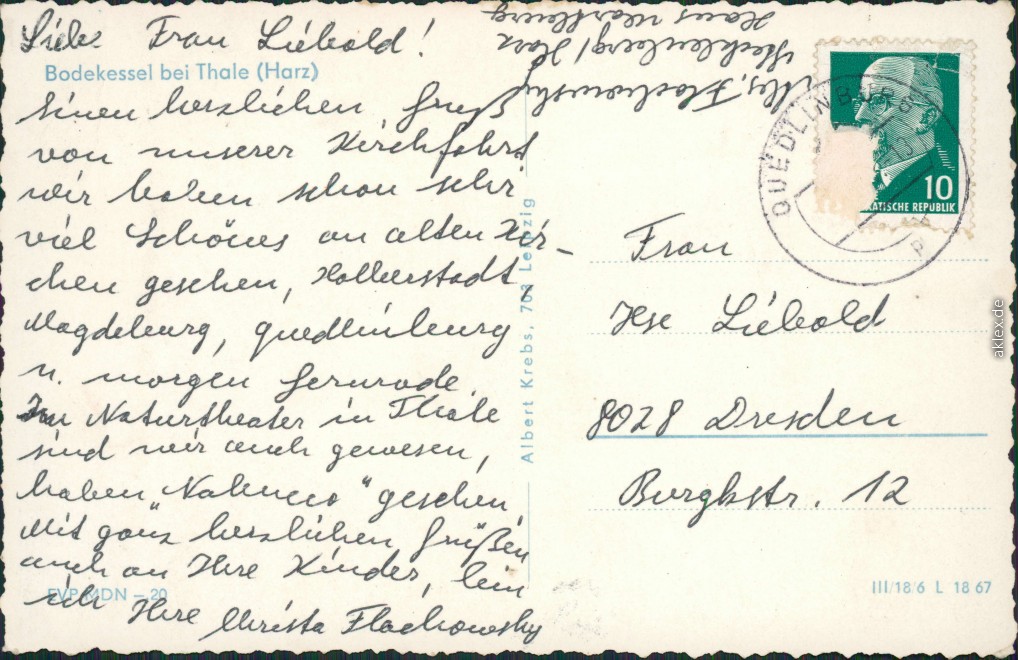 Liebe Frau Liebold!
Bodekessel bei Thale (Harz)
Einen herzlichen Gruß
von unserer Kirchfahrt
wir haben schon sehr
viel Schönes an alten Kir-
chen gesehen, Halberstadt,
Magdeburg, Quedlinburg
u. morgen Gernrode.
Im Naturtheater in Thale
sind wir auch gewesen,
haben „Nabucco" gesehen.
Mit ganz herzlichen Grüßen
auch an Ihre Kinder, bin
ich Ihre Christa Flachowsky
EVP MDN –20
Albert Krebs, 703 Leipzig
Abs. Flachowsky
Stecklenberg/Harz
Haus
QUEDLINBURG
10
RATISCHE REPUBLIK
Frau
Ilse Liebold
8028 Dresden
Burgkstr. 12
III/18/6 L 18 67
aklex.de